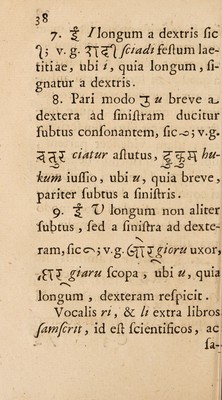 38
7. ई I longum a dextris sic
ी; v. g. शादी sciadi festum lae-
titiae, ubi i, quia longum, si-
gnatur a dextris.
8. Pari modo उ u breve a
dextera ad sinistram ducitur
subtus consonantem, sic ु; v. g.
चतुर ciatur astutus, हुकुम hu-
kum iussio, ubi u, quia breve,
pariter subtus a sinistris.
9. V longum non aliter
subtus, sed a sinistra ad dexte-
ram, sic ू; v. g. gioru uxor,
giaru scopa, ubi u, quia
longum, dexteram respicit.
Vocalis ri, & li extra libros
samscrit, id est scientificos, ac
sa-